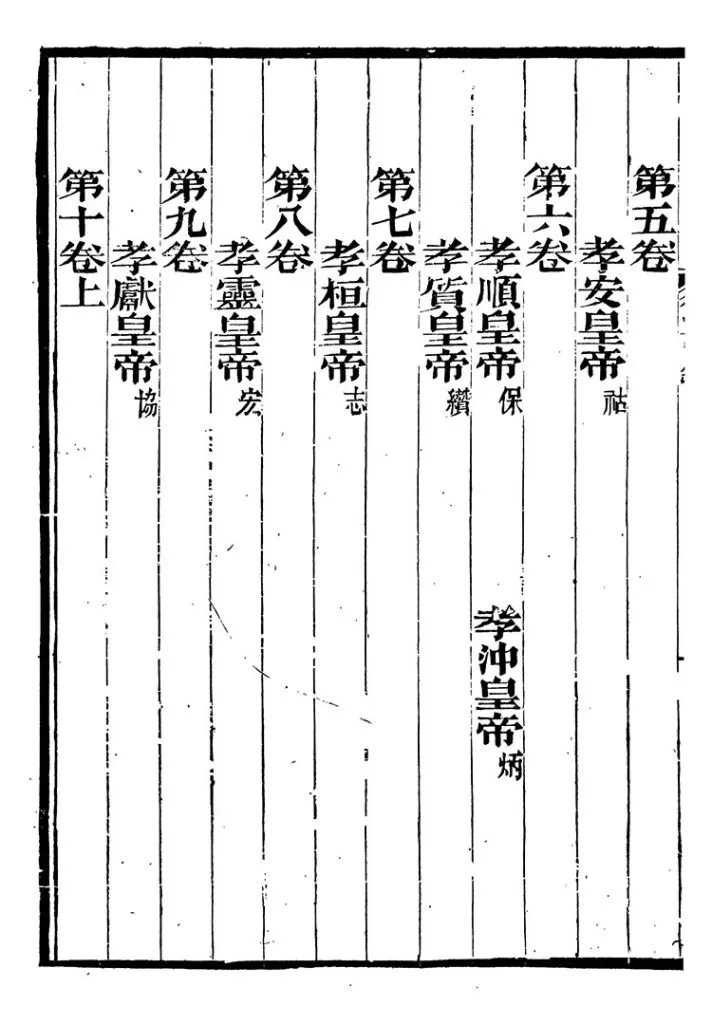 第五卷
孝安皇帝祜
第六卷
孝順皇帝保 孝沖皇帝炳
孝質皇帝纘
第七卷
孝桓皇帝志
第八卷
孝靈皇帝宏
第九卷
孝獻皇帝協
第十卷上